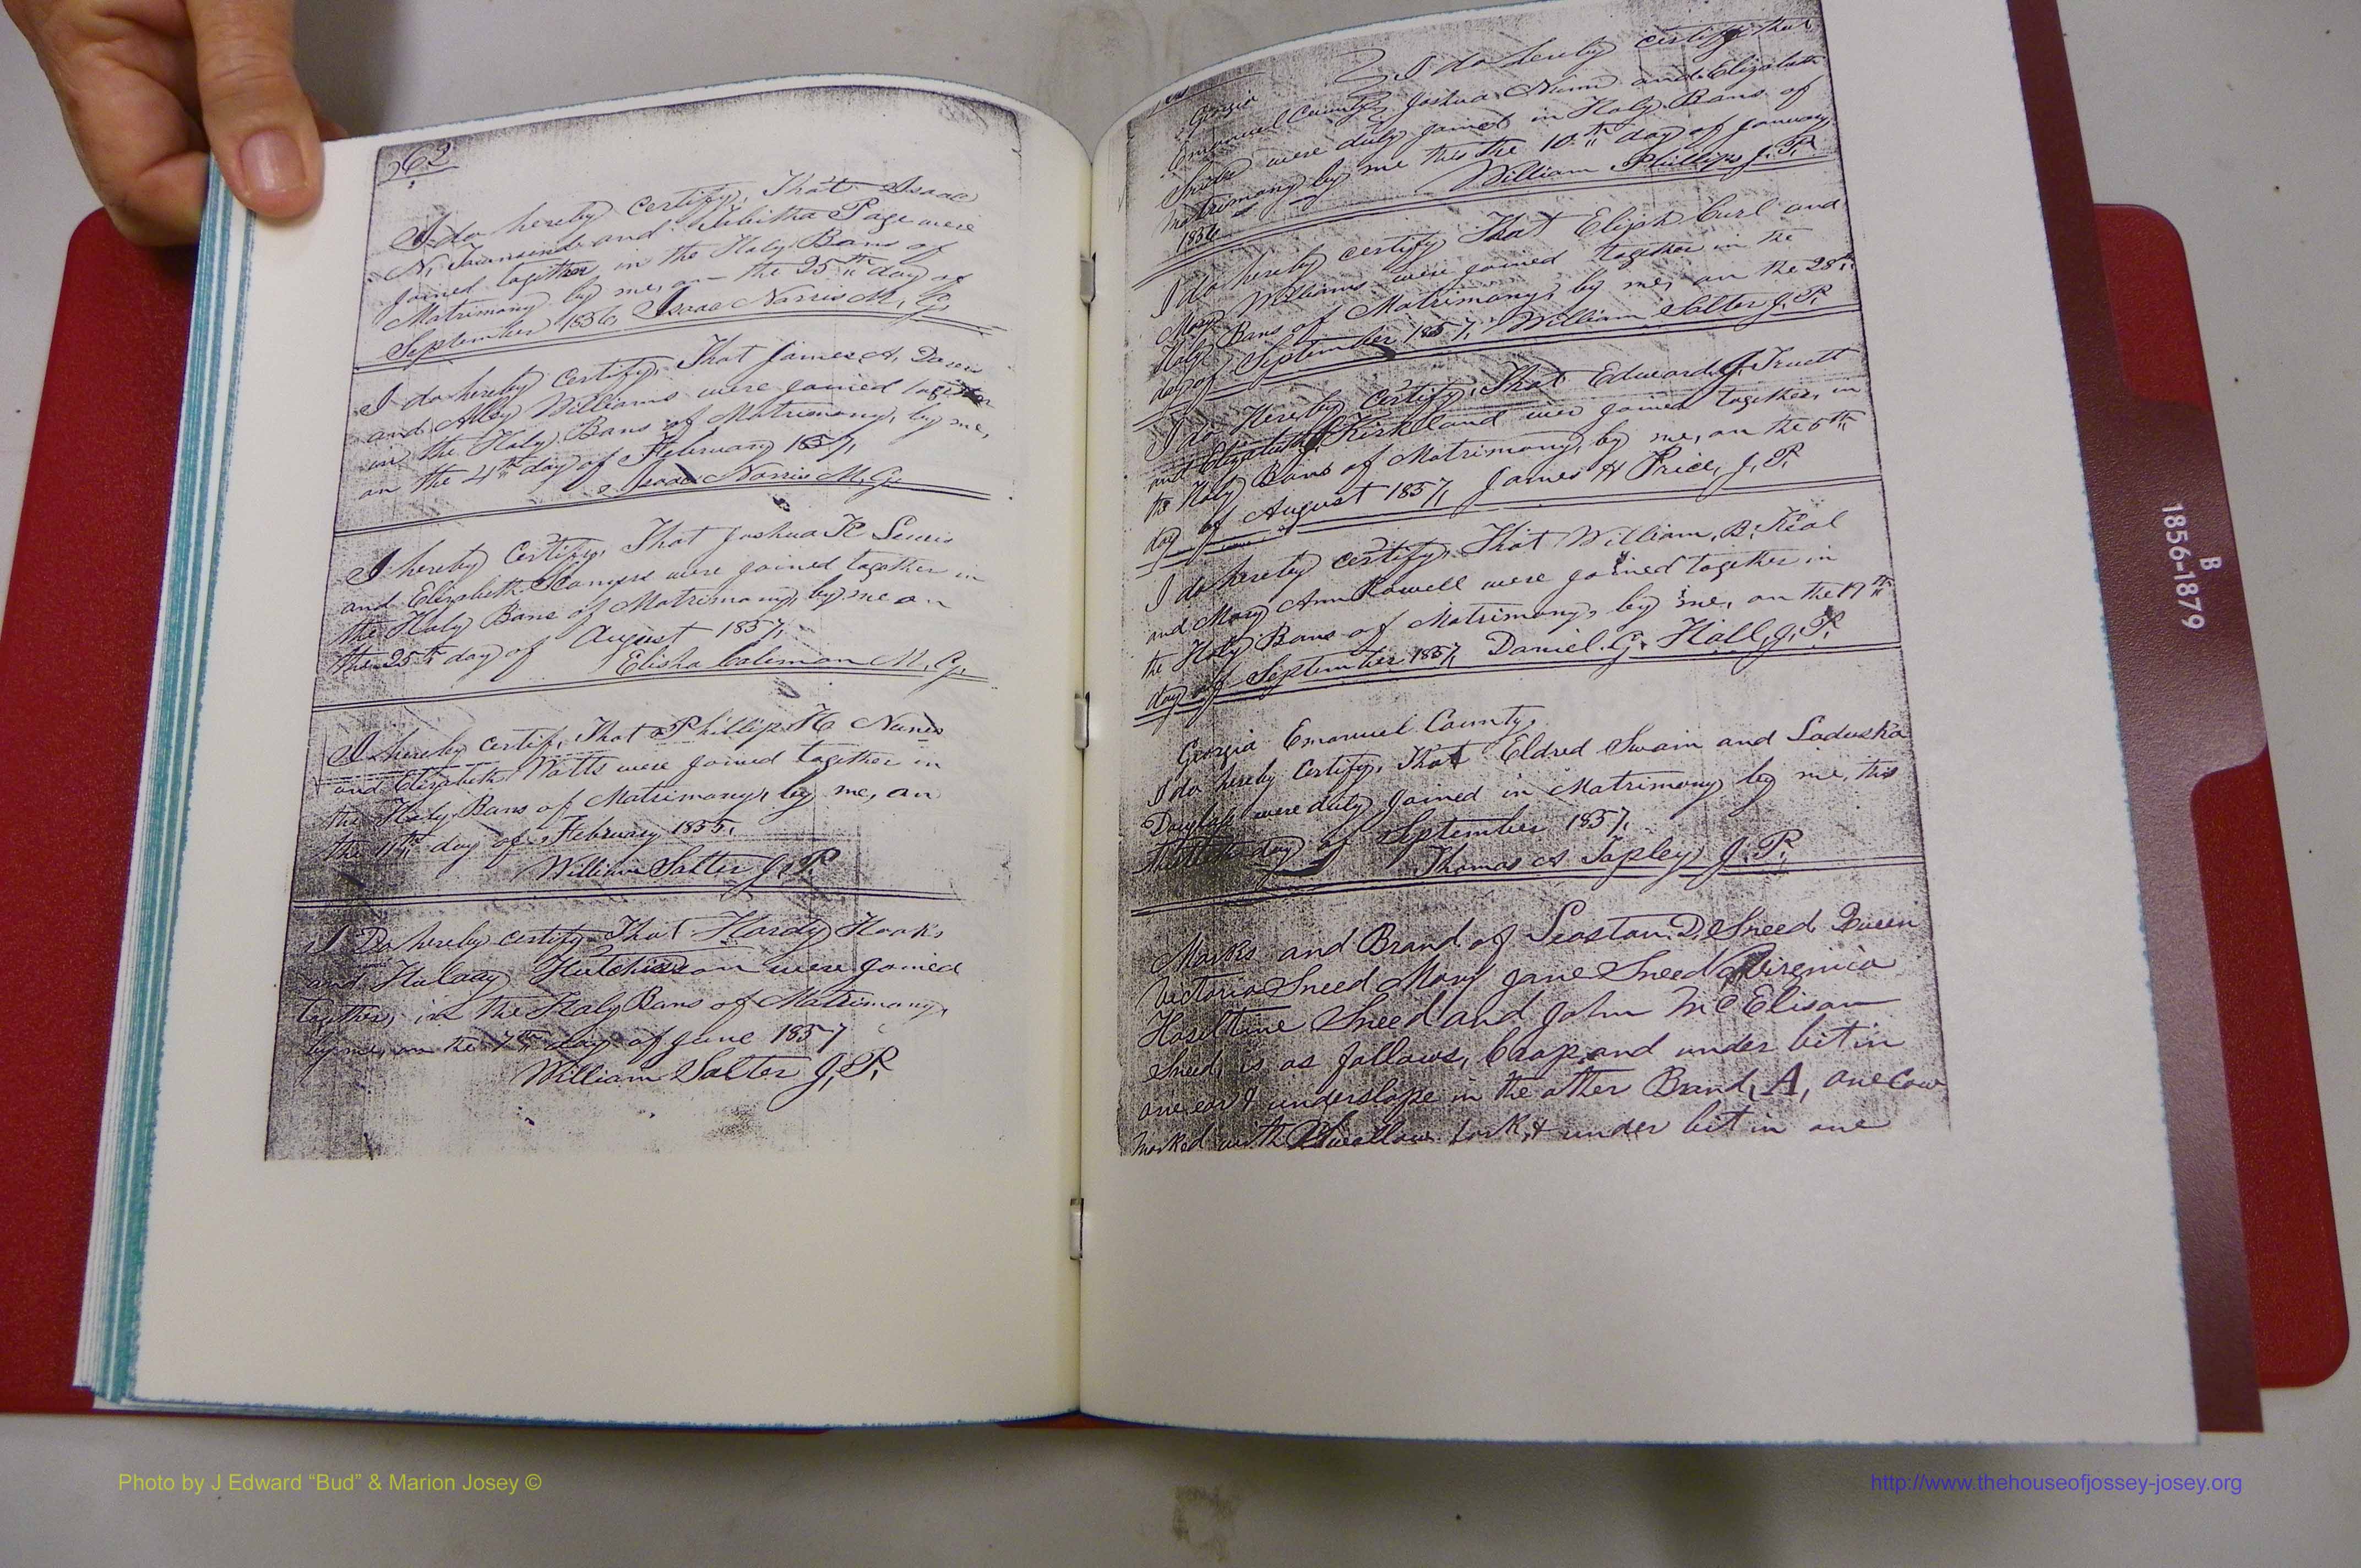 62
I do hereby certify, That Isaac
N, Townsend and Tibitha Page were
joined together in the Holy Bans of
Matrimony by me, on the 25th day of
September 1856, Isaac Norris M, G,
I do hereby certify, That James A, Davis
and Alley Williams were joined together
in the Holy Bans of Matrimony, by me,
on the 4th day of February 1857,
Isaac Norris M, G,
I hereby certify, That Joshua R Lewis
and Elizabeth were joined together in
the Holy Bans of Matrimony, by me on
the 25th day of August 1857,
Elisha Coleman M, G,
I hereby certify, That Phillip H Nunes
and Elizabeth Watts were joined together in
the Holy Bans of Matrimony, by me, on
the 11th day of February 1855,
William Salter J, P,
I Do hereby certify That Hardy Hooks
and Hutchinson were joined
together, in the Holy Bans of Matrimony,
by me, on the 7th day of June 1857
William Salter J, P,
Georgia I do hereby certify that
Emanuel County Joshua Nunn and Elizabeth
were duly joined in Holy Bans of
matrimony by me this the 10th day of January
1856 William Phillips J. P.
I do hereby certify That Elijah Curl and
Mary Williams were joined together in the
Holy Bans of Matrimony, by me, on the 28th
day of September 1857, William Salter J, P,
I do Hereby Certify, That Edward J. Truett
and Elizabeth Kirkland were joined together, in
the Holy Bans of Matrimony, by me, on the 6th
day of August 1857, James H Price, J, P,
I do hereby certify, That William, B, Keal
and Mary Ann Rowell were joined together in
the Holy Bans of Matrimony, by me, on the 17th
day of September 1857, Daniel. G. Hall, J, P,
Georgia Emanuel County,
I do hereby Certify, That Eldred Swain and Laduska
Douglass were duly joined in Matrimony by me, this
the day of September 1857,
Thomas A Tapley J. P.
Marks and Brand of Seastan D, Sneed Queen
Victoria Sneed Mary Jane Sneed Virginia
Haseltine Sneed and John McElison
Sneed, is as follows, Crop and under bit in
one ear & underslope in the other Brand, A, one Cow
marked with Swallow fork, & under bit in one
B
1856-1879
Photo by J Edward “Bud” & Marion Josey ©
http://www.thehouseofjossey-josey.org